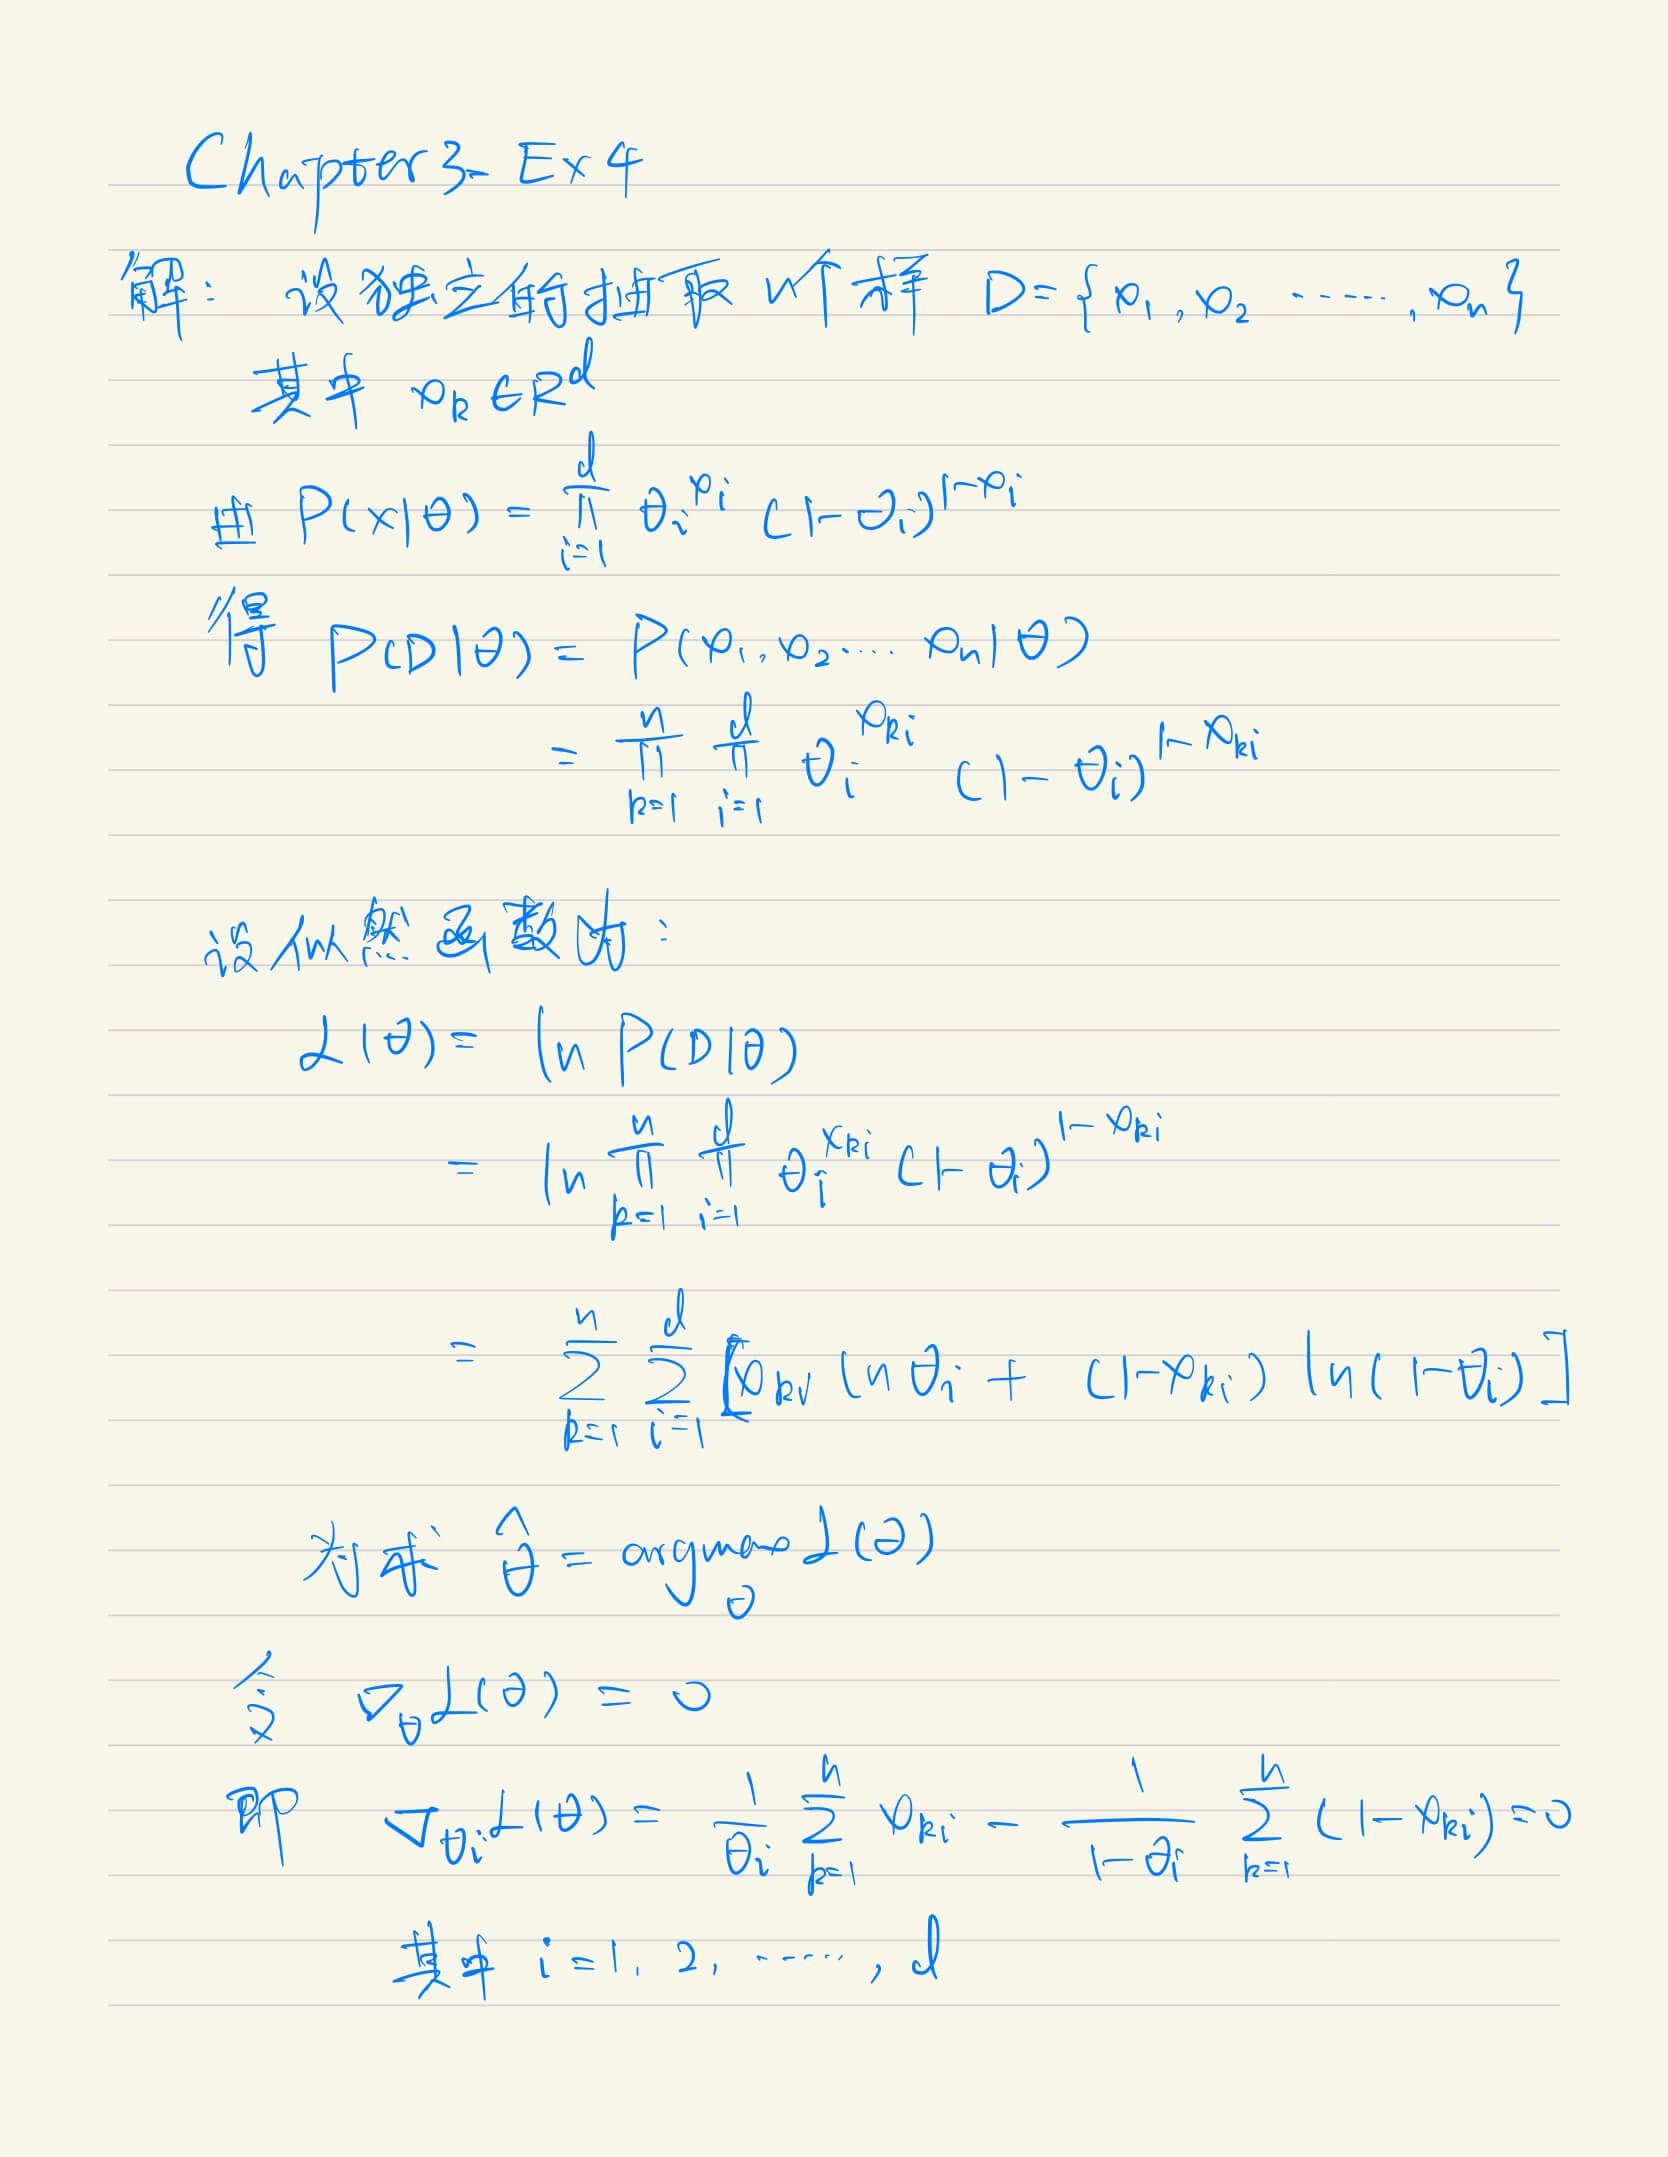 Chapter 3- Ex 4
解: 设独立的抽取 n个样 D={x₁, x₂ ……, xₙ}
其中 xₖ∈R^d
由 P(x|θ) = ∏_{i=1}^{d} θ_i^{x_i} (1-θ_i)^{1-x_i}
得 P(D|θ) = P(x₁, x₂…. xₙ|θ)
= ∏_{k=1}^{n} ∏_{i=1}^{d} θ_i^{x_{ki}} (1-θ_i)^{1-x_{ki}}
设似然函数为:
L(θ) = ln P(D|θ)
= ln ∏_{k=1}^{n} ∏_{i=1}^{d} θ_i^{x_{ki}} (1-θ_i)^{1-x_{ki}}
= ∑_{k=1}^{n} ∑_{i=1}^{d} [x_{ki} ln θ_i + (1-x_{ki}) ln(1-θ_i)]
为求 θ̂ = argmax_θ L(θ)
令 ∇_θ L(θ) = 0
即 ∇_{θ_i} L(θ) = 1/θ_i ∑_{k=1}^{n} x_{ki} - 1/(1-θ_i) ∑_{k=1}^{n} (1-x_{ki}) = 0
其中 i=1, 2, ……, d